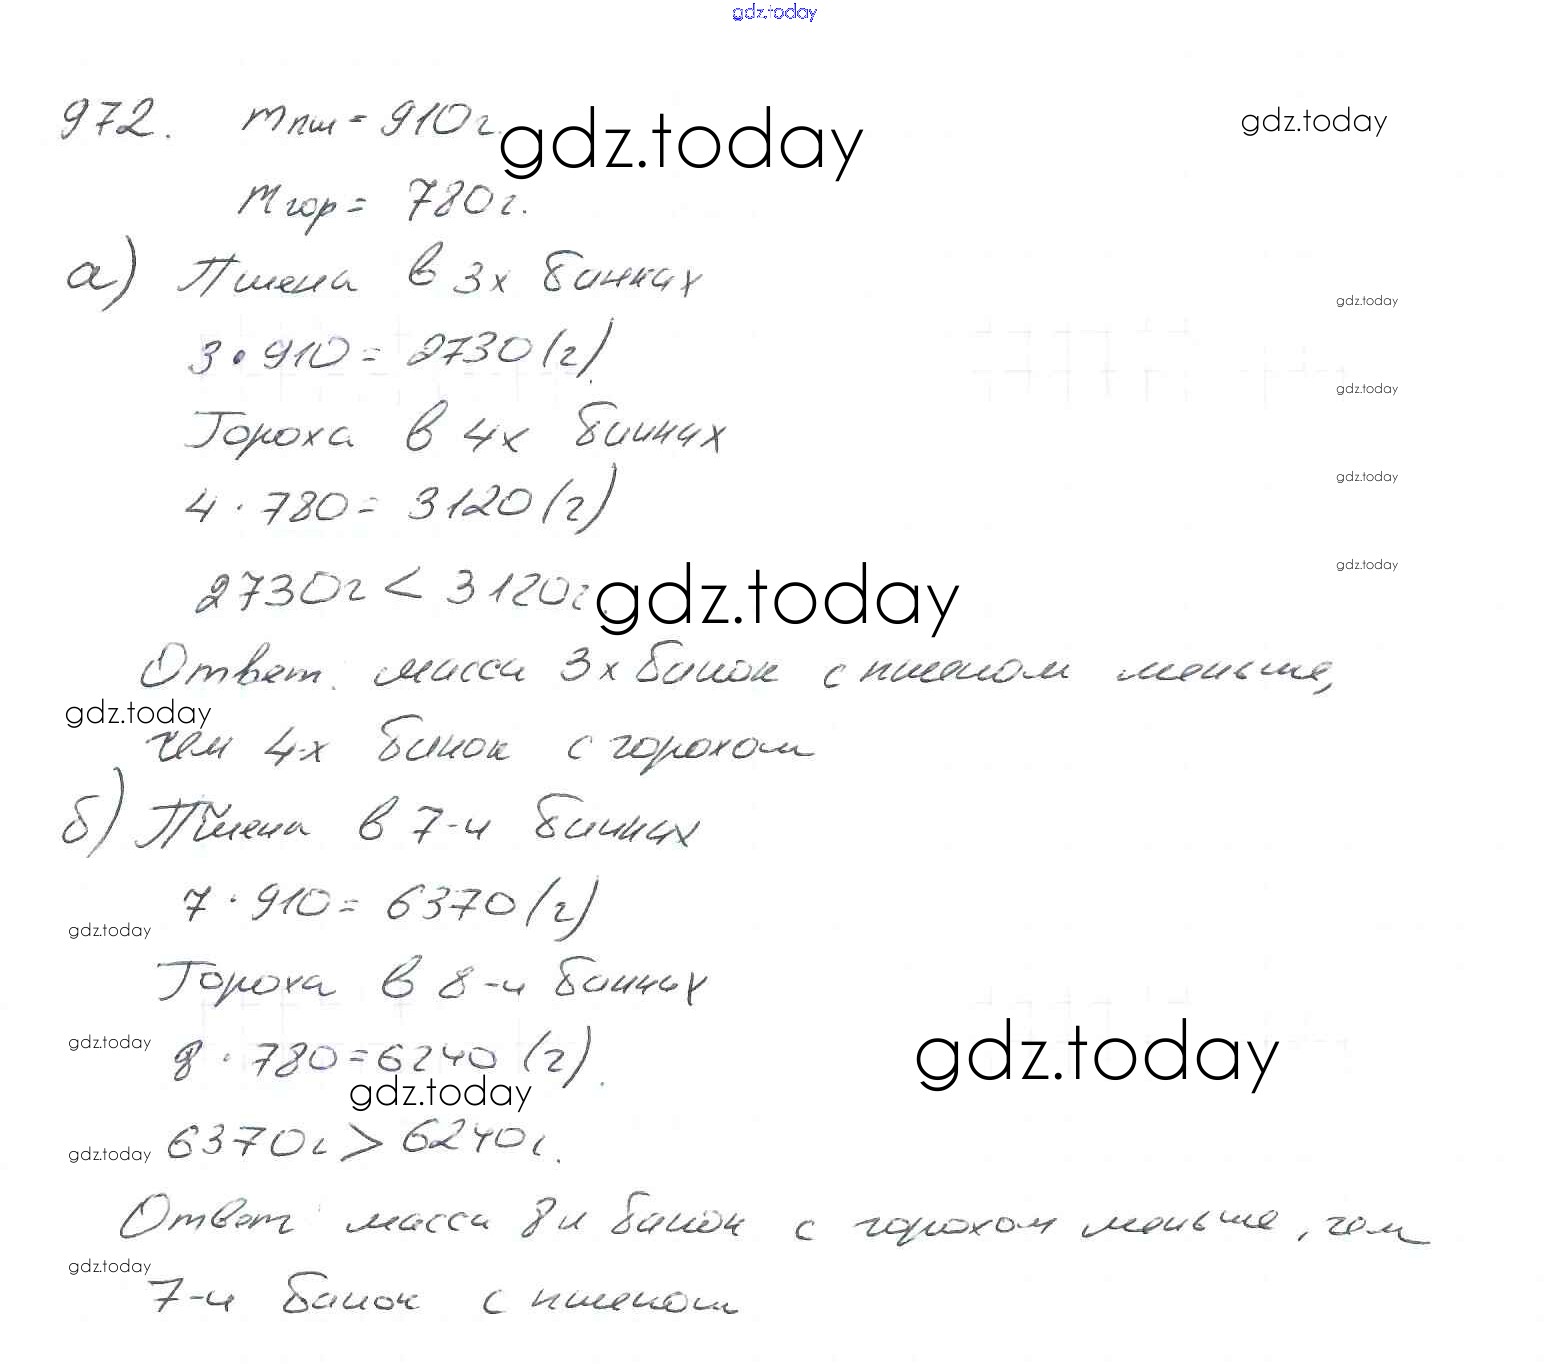 gdz.today
972. mпш = 910г. gdz.today gdz.today
mгор = 780г.
а) Пшена в 3х банках
gdz.today
3 • 910 = 2730 (г).
gdz.today
Гороха в 4х банках
gdz.today
4 · 780 = 3120 (г)
gdz.today
2730г < 3120г. gdz.today
Ответ: масса 3х банок с пшеном меньше,
gdz.today
чем 4-х банок с горохом
б) Пшена в 7-и банках
7 · 910 = 6370 (г)
gdz.today
Гороха в 8-и банках
gdz.today 8 · 780 = 6240 (г). gdz.today
gdz.today
gdz.today 6370г > 6240г.
Ответ: масса 8и банок с горохом меньше, чем
gdz.today
7-и банок с пшеном